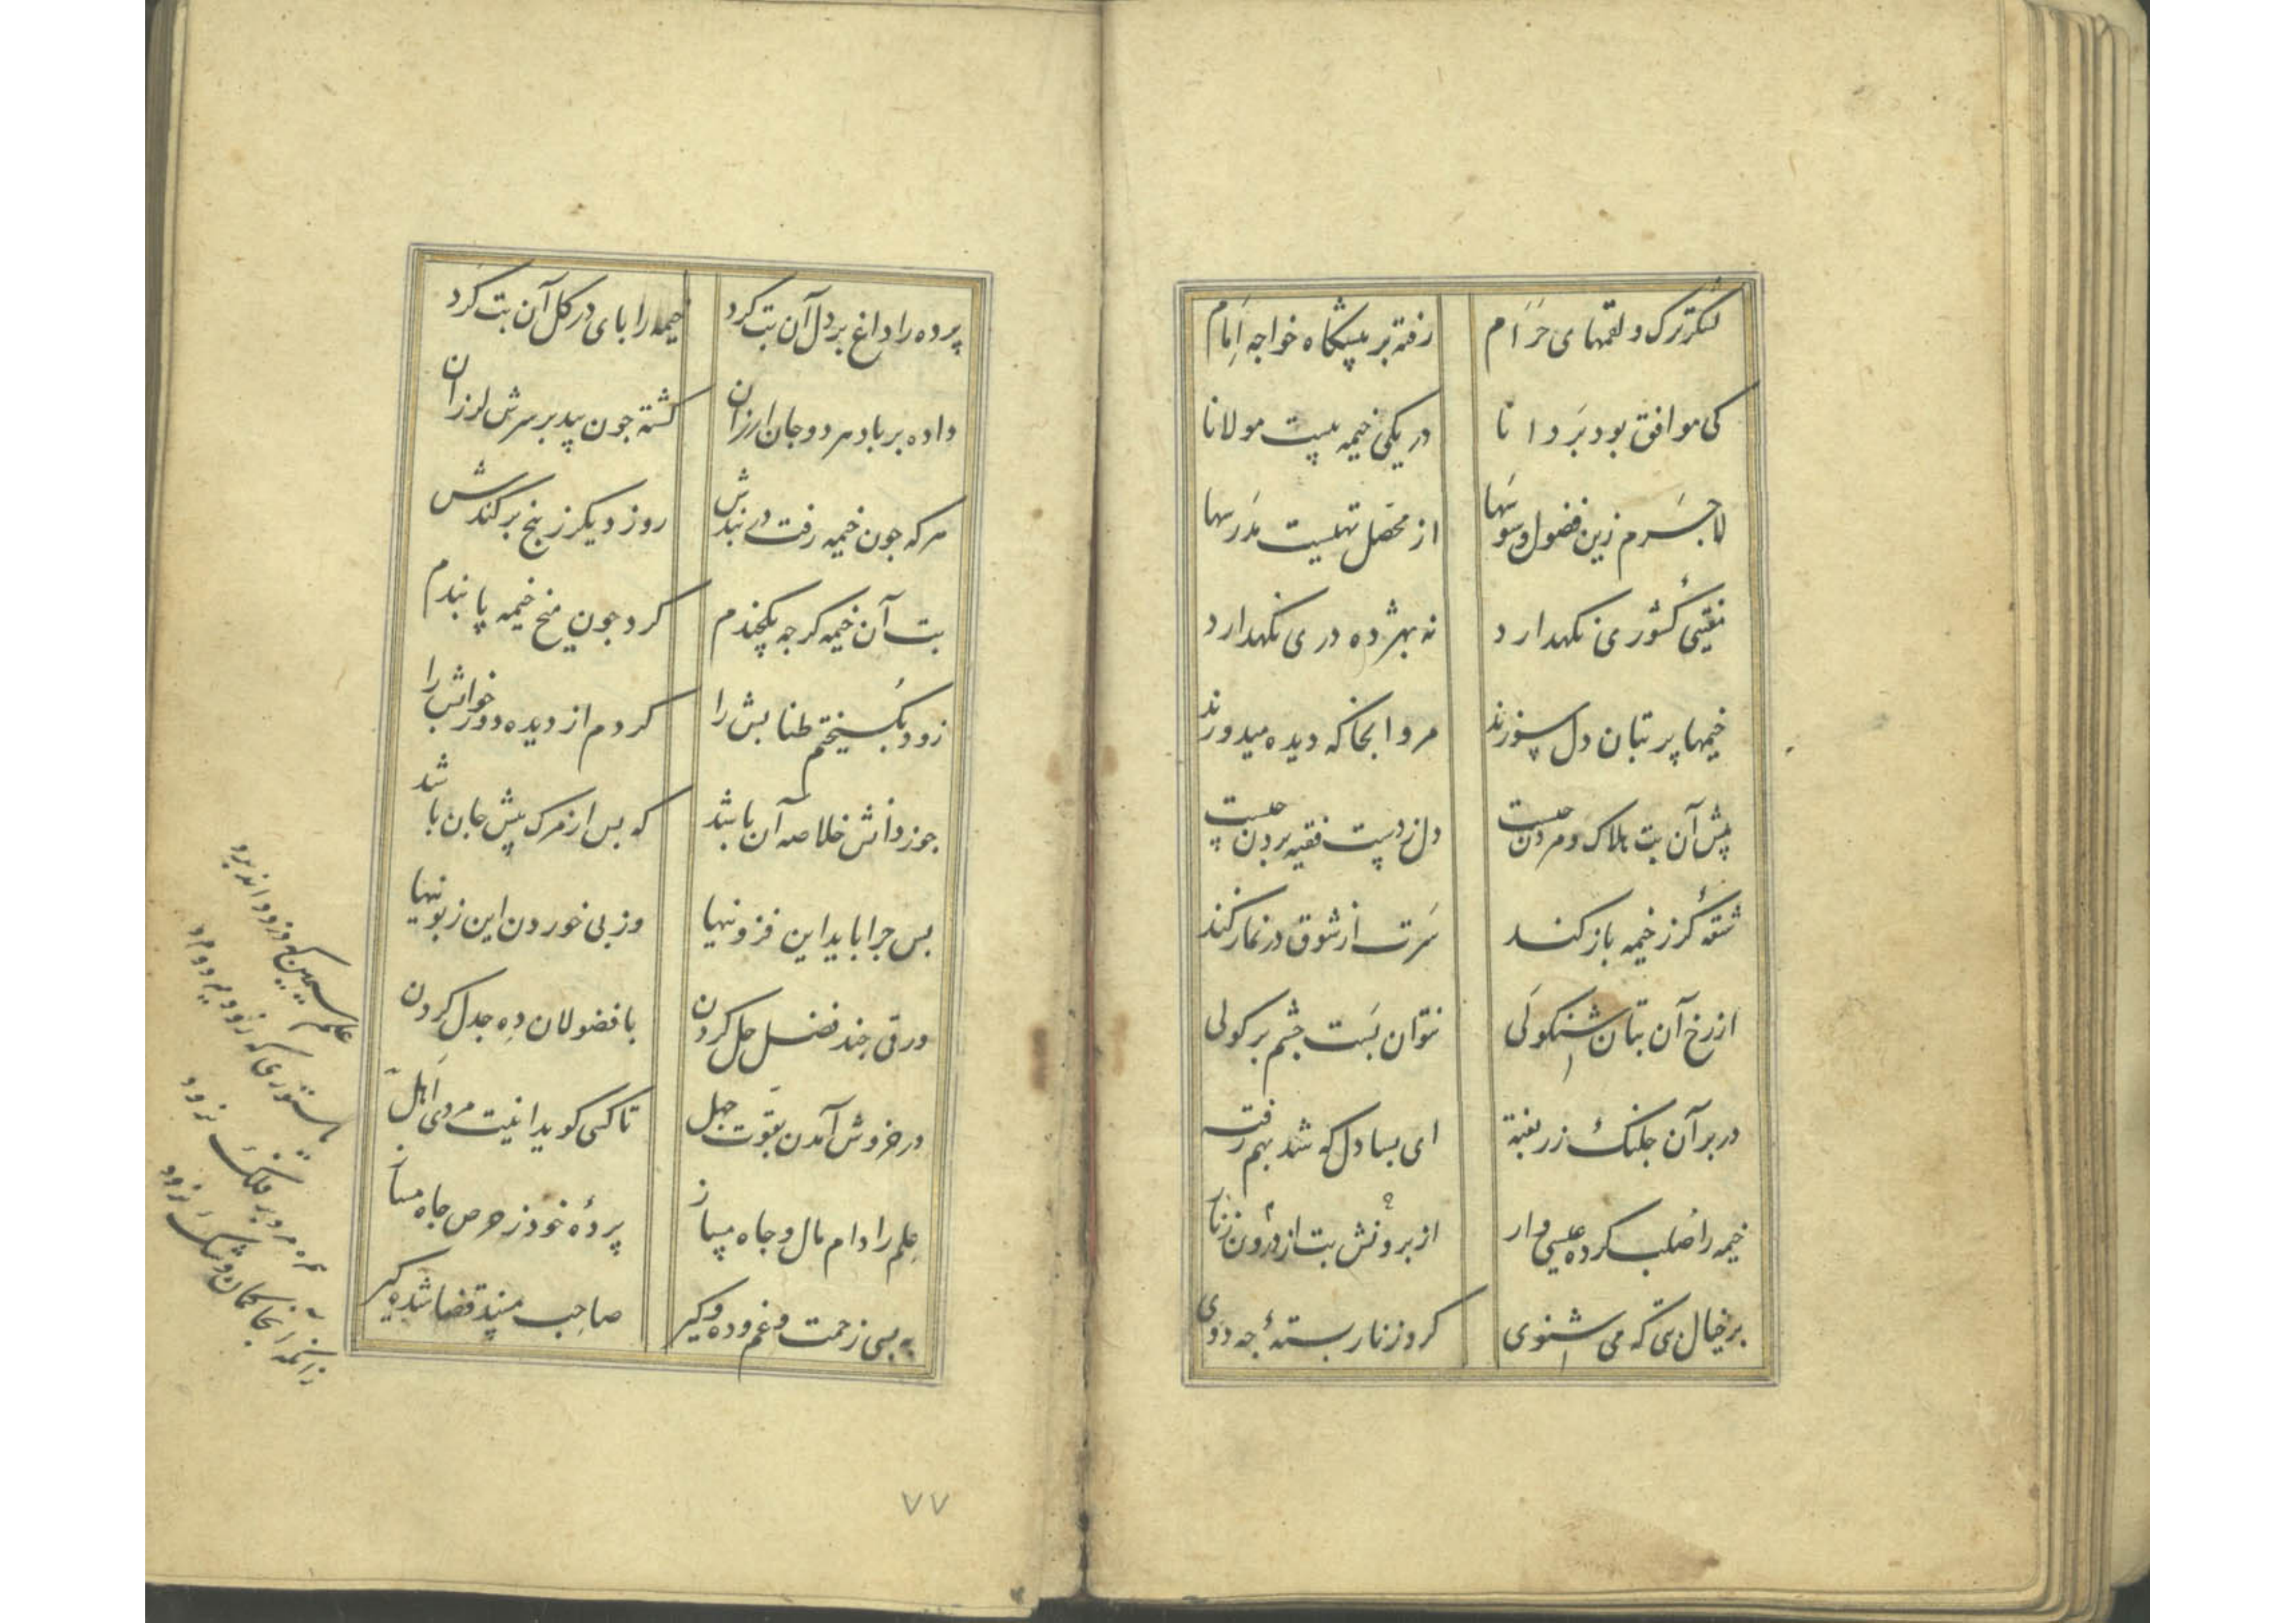 لشکر ترک و لقمهای حرام
رفته بر پیشگاه خواجه امام
کی موافق بود بر دانا
در یکی خیمه بیست مولانا
لاجرم زین فضول وسوسها
از محصل تهیست مدرسها
نقیبی کشوری نکهدارد
نه بهر ده دری نکهدارد
خیمها پر بتان دل سوزند
مرو آنجا که دیده میدوزند
پیش آن بت هلاک و مردن چیست
دل ز دست فقیه بردن چیست
شقهٔ کر ز خیمه باز کند
سرت از شوق در نماز کند
از رخ آن بتان شنکولی
نتوان بست چشم بر کولی
در بر آن جلنک زر بفته
ای بسا دل که شد بهم رفته
خیمه را صلب کرده عیسی وار
از برونش بت از درون زنار
بر خیال بتی که می شنوی
کرد زنار بستهٔ چه دوی
پرده را داغ بر دل آن بت کرد
خیمه را پای در کل آن بت کرد
داده بر باد هر دو جان ارزان
کشته جون بید بر سرش لرزان
هرکه جون خیمه رفت در بندش
روز دیکر ز بیخ برکندش
بت آن خیمه کرچه یکچندم
کرد جون میخ خیمه پابندم
زود بکسیختم طنابش را
کردم از دیده دور خوابش را
جوز دانش خلاصه آن باشد
که بس از مرک پیش جان باشد
بس جرا باید این فزونیها
وز پی خوردن این زبونیها
ورقی جند فضل حل کردن
با فضولان ده جدل کردن
در خروش آمدن بقوت جهل
تا کسی کوید اینت مردی اهل
علم را دام مال و جاه مساز
پردهٔ خود ز حرص جاه مساز
بسی زحمت و غم و ده و کیر
صاحب مسند قضا شده کیر
۷۷